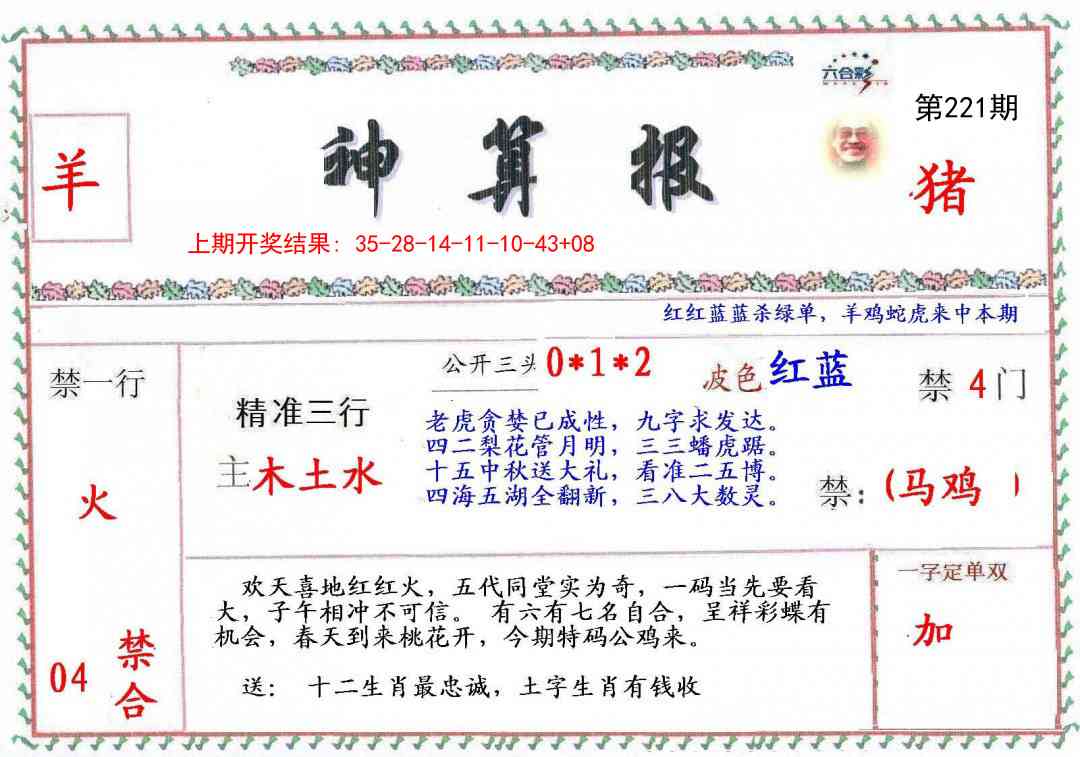 六合彩
第221期
羊
神算报
猪
上期开奖结果: 35-28-14-11-10-43+08
红红蓝蓝杀绿单，羊鸡蛇虎来中本期
禁一行
火
04
禁合
精准三行
主木土水
公开三头0*1*2
波色红蓝
老虎贪婪已成性，九字求发达。
四二梨花管月明，三三蟠虎踞。
十五中秋送大礼，看准二五博。
四海五湖全翻新，三八大数灵。
禁4门
禁:(马鸡 )
欢天喜地红红火，五代同堂实为奇，一码当先要看
大，子午相冲不可信。 有六有七名自合，呈祥彩蝶有
机会，春天到来桃花开，今期特码公鸡来。
送: 十二生肖最忠诚，土字生肖有钱收
一字定单双
加